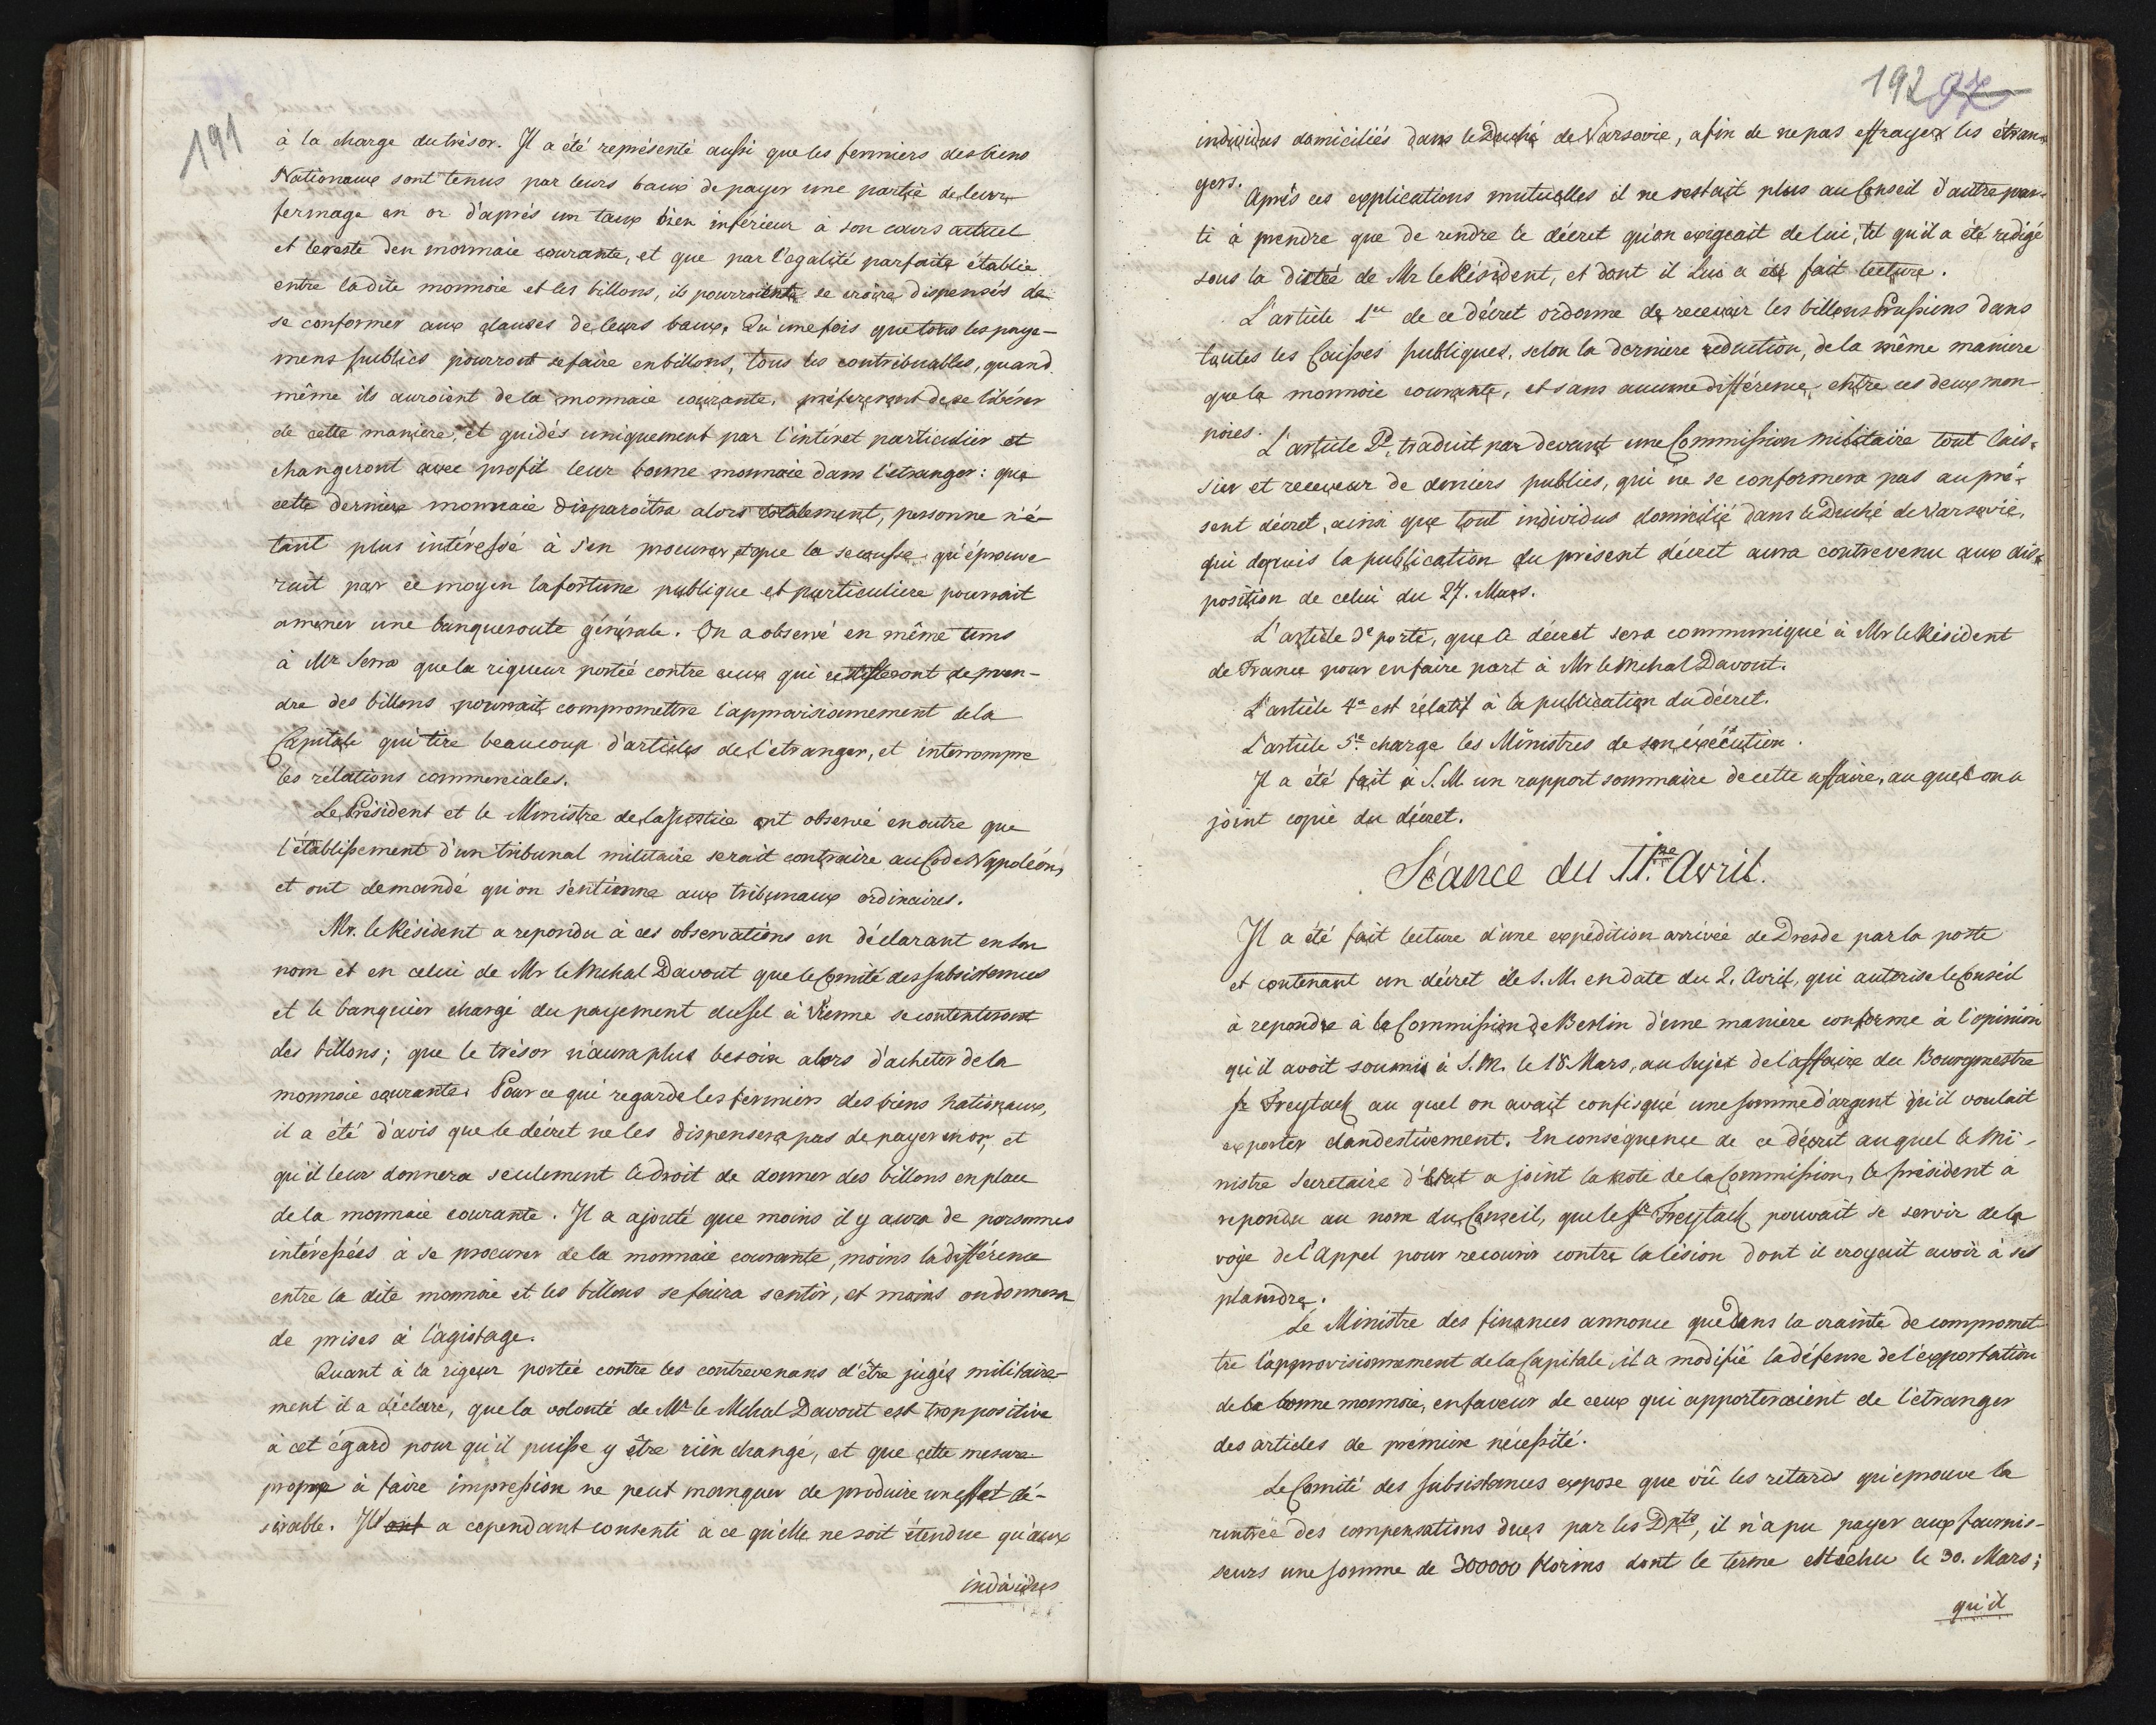 191
à la charge du trésor. Il a été représenté aussi que les fermiers des biens
Nationaux sont tenus par leurs baux de payer une partie de leur
fermage en or d'après un taux bien inférieur à son cours actuel
et le reste den monnaie courante, et que par l'egalité parfaite établie
entre ladite monnoie et les billons, ils pourroient se croire dispensés de
se conformer aux clauses de leurs baux. Qu'une fois que tous les paye-
mens publics pourront se faire en billons, tous les contribuables, quand
même ils auroient de la monnaie courante, préfereront de se libérer
de cette maniere, et guidés uniquement par l'intéret particulier et
changeront avec profit leur bonne monnaie dans l'etranger: que
cette derniere monnaie disparoitra alors totalement, personne n'é-
tant plus intéressé à s'en procurer et que la secousse qu'éprouve-
rait par ce moyen la fortune publique et particuliere pourrait
amener une banqueroute générale. On a observé en même tems
à Mr Serra que la rigueur portée contre ceux qui refuseront de pren-
dre des billons pourrait compromettre l'approvisionnement de la
Capitale qui tire beaucoup d'articles de l'étranger, et interrompre
les rélations commerciales.
Le Président et le Ministre de la Justice ont observé en outre que
l'établissement d'un tribunal militaire serait contraire au Code Napoléon,
et ont demandé qu'on s'entienne aux tribunaux ordinaires.
Mr. le Résident a repondu à ces observations en déclarant en son
nom et en celui de Mr le Mchal Davout que le Comité des subsistances
et le banquier chargé du payement du sel à Vienne se contenteront
des billons; que le trésor n'aura plus besoin alors d'acheter de la
monnoie courante. Pour ce qui regarde les fermiers des biens nationaux,
il a été d'avis que le décret ne les dispensera pas de payer en or, et
qu'il leur donnera seulement le droit de donner des billons en place
de la monnaie courante. Il a ajouté que moins il y aura de personnes
intéressées à se procurer de la monnaie courante, moins la différence
entre la dite monnoie et les billons se faira sentir, et moins on donnera
de prises à l'agiotage.
Quant à la rigeur portée contre les contrevenans d'être jugés militaire-
ment il a déclaré, que la volonté de Mr le Mchal Davout est trop positive
à cet égard pour qu'il puisse y être rien changé, et que cette mesure
propre à faire impression ne peut manquer de produire un effet dé-
sirable. Il ont a cependant consenti à ce qu'elle ne soit étendue qu'aux
individus
192 97
individus domiciliés dans le Duché de Varsovie, afin de ne pas effrayer les étran-
gers.
Après ces explications mutuelles il ne restait plus au Conseil d'autre par-
ti à prendre que de rendre le décret qu'on exigeait de lui, tel qu'il a été redigé
sous la dictée de Mr le Résident, et dont il lui a été fait lecture.
L'article 1er de ce décret ordonne de recevoir les billons Prussiens dans
toutes les Caisses publiques, selon la derniere reduction, de la même maniere
que la monnoie courante, et sans aucune différence entre ces deux mon-
noies.
L'article 2e. traduit par devant une Commission militaire tout Cais-
sier et receveur de deniers publics, qui ne se conformera pas au pré-
sent décret, ainsi que tout individus domicilié dans le Duché de Varsovie,
qui depuis la publication du présent décret aura contrevenu aux dis-
position de celui du 27. Mars.
L'article 3e porte, que le décret sera communiqué à Mr le Résident
de France pour en faire part à Mr le Mchal Davout.
L'article 4e est rélatif à la publication du décret.
L'article 5e charge les Ministres de son éxécution.
Il a été fait à S. M. un rapport sommaire de cette affaire, au quel on a
joint copie du décret.
Séance du 11. Avril.
Il a été fait lecture d'une expédition arrivée de Dresde par la poste
et contenant un décret de S. M. en date du 2. Avril, qui autorise le Conseil
à repondre à la Commission de Berlin d'une maniere conforme à l'opinion
qu'il avoit soumis à S. M. le 18 Mars, au sujet de l'affaire du Bourgmestre
Sr Freytack au quel on avait confisqué une somme d'argent qu'il voulait
exporter clandestivement. En conséquence de ce décret auquel le Mi-
nistre Secretaire d'Etat a joint la note de la Commission, le président a
repondu au nom du Conseil, que le Sr Freytack pouvait se servir de la
voye de l'Appel pour recourir contre la lésion dont il croyait avoir à se
plaindre.
Le Ministre des finances annonce que dans la crainte de compromet-
tre l'approvisionnement de la Capitale, il a modifié la défense de l'exportation
de la bonne monnoie, en faveur de ceux qui apporteraient de l'étranger
des articles de prémiere nécessité.
Le Comité des subsistances expose que vû les retards qu'éprouve la
rentrée des compensations dues par les Dpts, il n'a pu payer aux fournis-
seurs une somme de 300000 florins dont le terme est échu le 30. Mars;
qu'il